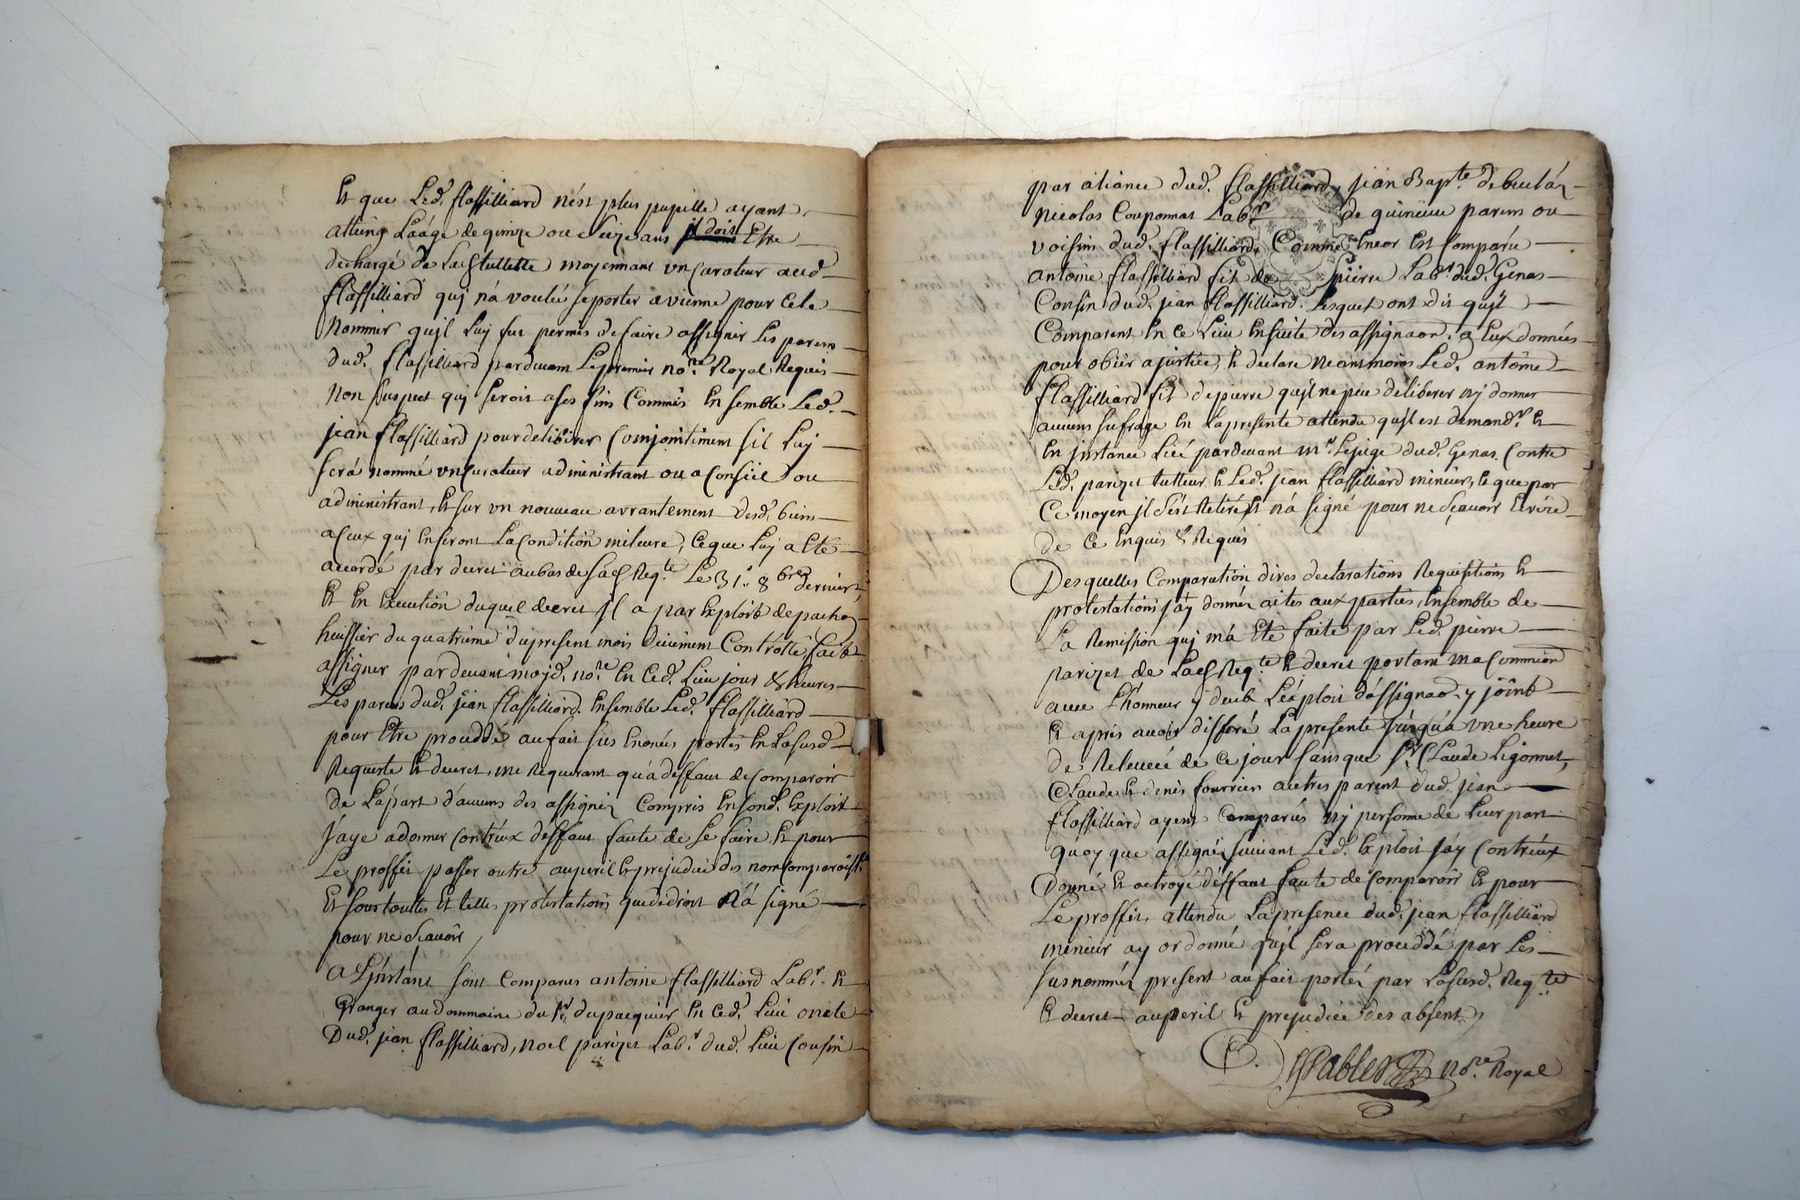 Et que Led. flassilliard nést plus pupille ayant
atteint Laáge de quinze ou seize ans il doit Etre
dechargé de Lad. tuttelle moyennant vn Curateur aud.
flassilliard quj ná voulu se porter a vienne pour Cele
Nommer qujl Luj fut permis de faire assigner Les parens
dud. flassilliard pardevant Le premier no.re Royal Requis
Non suspect quj seroit a ses fins Commis Ensemble Led.
jean flassilliard pour deliberer Conjointement sil Luj
será nommé vn Curateur administrant ou a Conseil ou
administrant, Et sur vn nouveau arrantement desd. biens
a Ceux quj En feront La Condition mileure, Ce que Luj a Eté
accordé par decret au bas de Sad. Req.te Le 31.e 8bre dernier,
Et En Execution duquel decret jl a par Exploit de
huissier du quatrieme du present mois deüement Controllé faib
assigner pardevant mojd. no.re En Ced. Lieu jour & heures
Les parens dud. jean flassilliard Ensemble Led. flassilliard
pour Etre proceddé au fait sus Enoncés portés En La susd.
Requeste Et decret, me Requerant qu'a deffaut de Comparoir
de La part d'aucuns des assignéz Compris En sond. Exploit
J'aye a donner Contr'eux deffaut faute de Le faire Et pour
Le proffit passer outre au peril Et prejudice des non Comparoiss.ts
Et sous touttes Et telles protestations que de droit Ná signé
pour ne scavoir
A L'jnstant sont Comparus antoine flassilliard Lab.r Et
Granger au dommaine du S.r dupacquier En Ced. Lieu oncle
Dud. jean flassilliard, noel parizet Lab.r dud. Lieu Cousin
par aliance dud. flassilliard, jean Bap.te
nicolas Couponnat Lab.r de quincieu parens ou
voisins dud. flassilliard, Comme Encor Est Comparu
antoine flassilliard fils de pierre Lab.r dud. Genas
Cousin dud. jean flassilliard. Lesquels ont dit qujl
Comparent En Ce Lieu Ensuite des assignaon. a Eux données
pour obéir a justice, Et declare neantmoins Led. antoine
flassilliard fils de pierre qujl ne peu deliberer nj donner
aucuns sufrage En La presente attendu qujl est demand.r Et
En jnstance Liée pardevant m.r Le juge dud. Genas Contre
Led. parizet tutteur Et Led. jean flassilliard mineur, Et que par
Ce moyen jl s'ést Retiré Et ná signé pour ne Sçavoir Ecrire
de Ce Enquis & Requis
Desquelles Comparution dires declarations Requisitions Et
protestations j'ay donnéz actes aux parties, Ensemble de
La Remission quj má Eté faite par Led. pierre
parizet de Lad. Req.te Et decret portant ma Commion
avec l'honneur y deub L'exploit d'assignaon. y joint
Et aprés avoir differé La presente jusqu'a vne heure
de Relevée de Ce jour sans que S.r Claude Ligonnet,
Claude Et denis fourrier autres parent dud. jean
flassilliard ayent Comparus nj personne de Leur part
Quoy que assignéz suivant Led. Exploit j'ay Contr'eux
Donné Et octroyé deffaut faute de Comparoir Et pour
Le proffit, attendu La presence dud. jean flassilliard
mineur ay ordonné qujl sera proceddé par Les
susnomméz present au fait portéz par La susd. Req.te
Et decret au peril Et prejudice des absent
no.re Royal